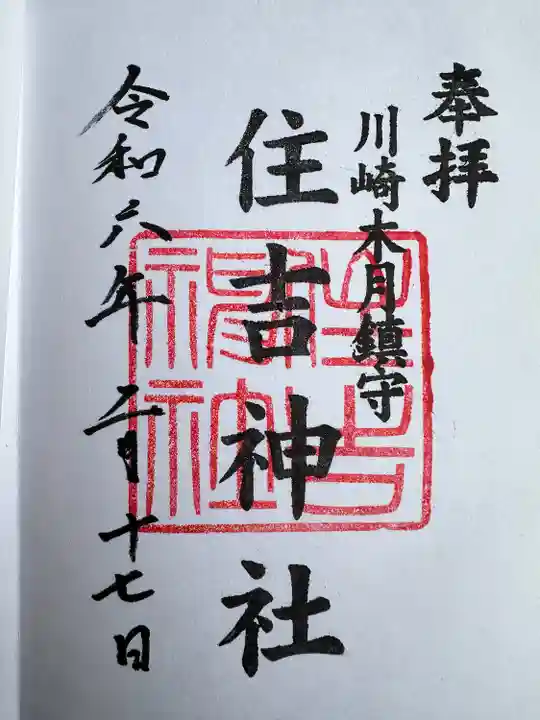 奉拝
川崎木月鎮守
住吉神社
令和六年二月十七日